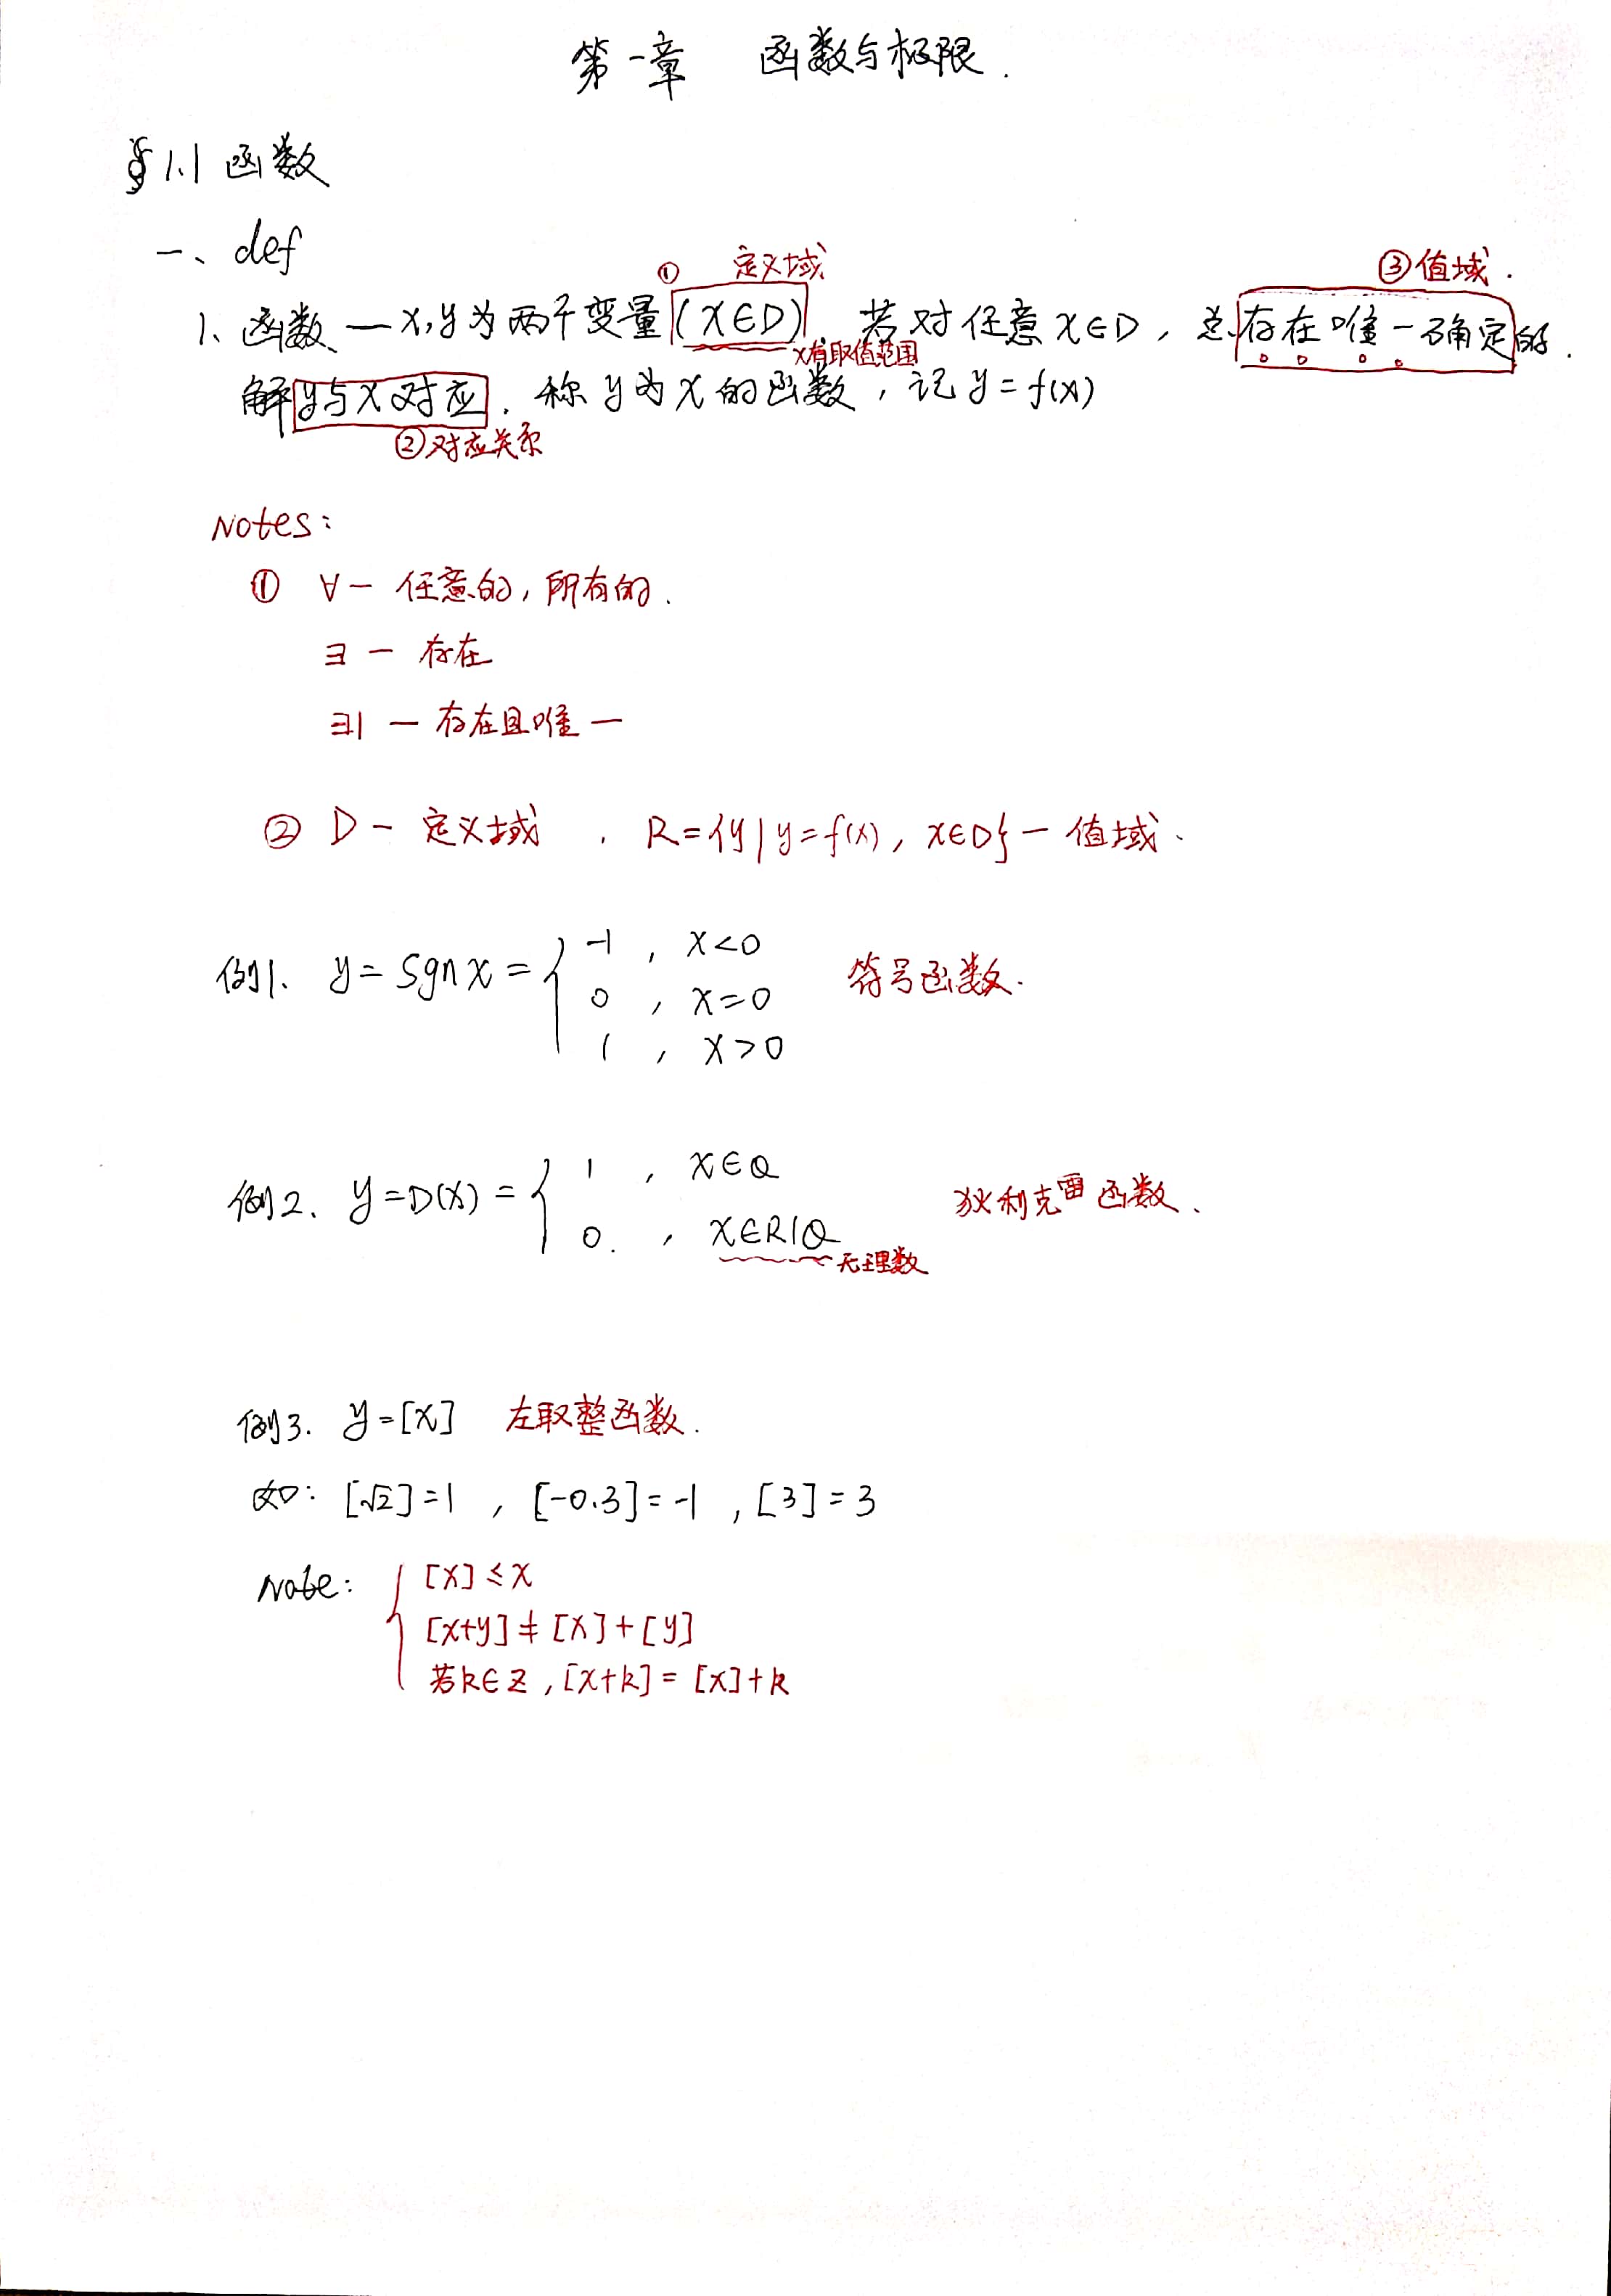 第一章 函数与极限.
§1.1 函数
一、def
① 定义域
③值域.
1、函数 — x,y为两个变量(x∈D), 若对任意x∈D, 总存在唯一确定的.
x有取值范围
解y与x对应. 称y为x的函数, 记y=f(x)
②对应关系
Notes:
① ∀ — 任意的, 所有的.
∃ — 存在
∃| — 存在且唯一
② D — 定义域 . R={y|y=f(x), x∈D} — 值域.
例1. y=sgn x= { -1 , x<0
0 , x=0
1 , x>0
符号函数.
例2. y=D(x)= { 1 , x∈Q
0. , x∈R\Q
无理数
狄利克雷函数.
例3. y=[x] 左取整函数.
如: [√2]=1 , [-0.3]=-1 , [3]=3
Note: { [x]≤x
[x+y]≠[x]+[y]
若k∈Z ,[x+k]=[x]+k